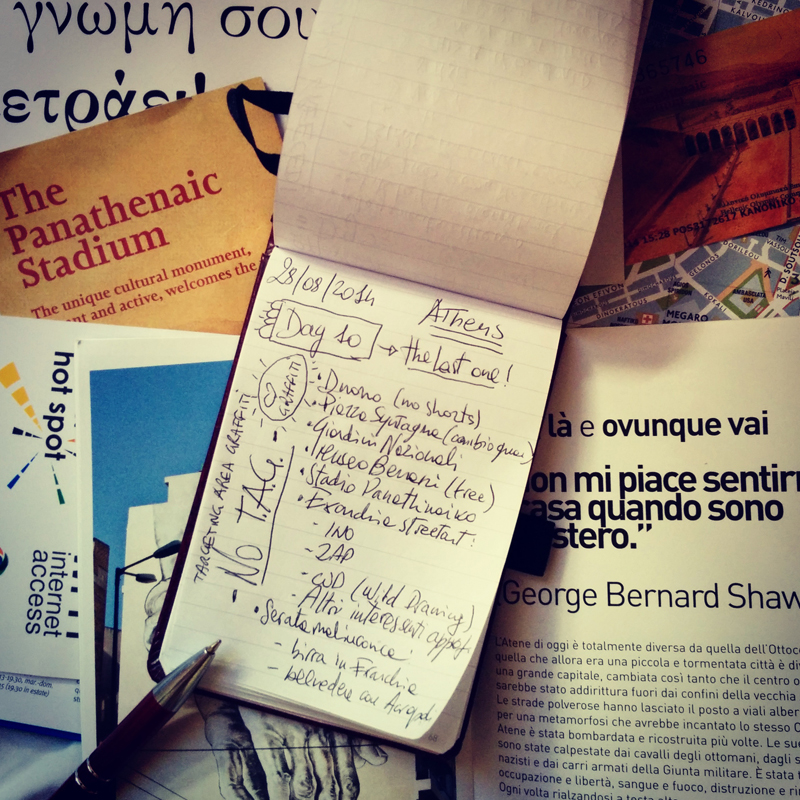 γνώμη σου
μετράει!
The
Panathenaic
Stadium
The unique cultural monument,
and active, welcomes the
hot spot
internet
access
28/08/2014
Athens
Day 10
the last one!
GRAFFITI
TARGETING AREA GRAFFITI
NO TAG
• Duomo (no shorts)
• Piazza Syntagma (cambio guar
• Giardini Nazionali
• Museo Benaki (free)
• Stadio Panathinaiko
• Exarchia streetart:
- INO
- ZAP
- WD (Wild Drawing)
- Altri interessanti
• Serata malinconica:
- birra in
- belvedere con Acropoli
15:28
KANONIKO
MEGARO
là e ovunque vai
on mi piace sentirm
casa quando sono
stero.”
George Bernard Shaw
L'Atene di oggi è totalmente diversa da quella dell'Ottoc
quella che allora era una piccola e tormentata città è di
una grande capitale, cambiata così tanto che il centro o
sarebbe stato addirittura fuori dai confini della vecchia
Le strade polverose hanno lasciato il posto a viali alber
per una metamorfosi che avrebbe incantato lo stesso
Atene è stata bombardata e ricostruita più volte. Le su
sono state calpestate dai cavalli degli ottomani, dagli s
nazisti e dai carri armati della Giunta militare. È stata
occupazione e libertà, sangue e fuoco, distruzione e ri
Ogni volta rialzandosi a testa